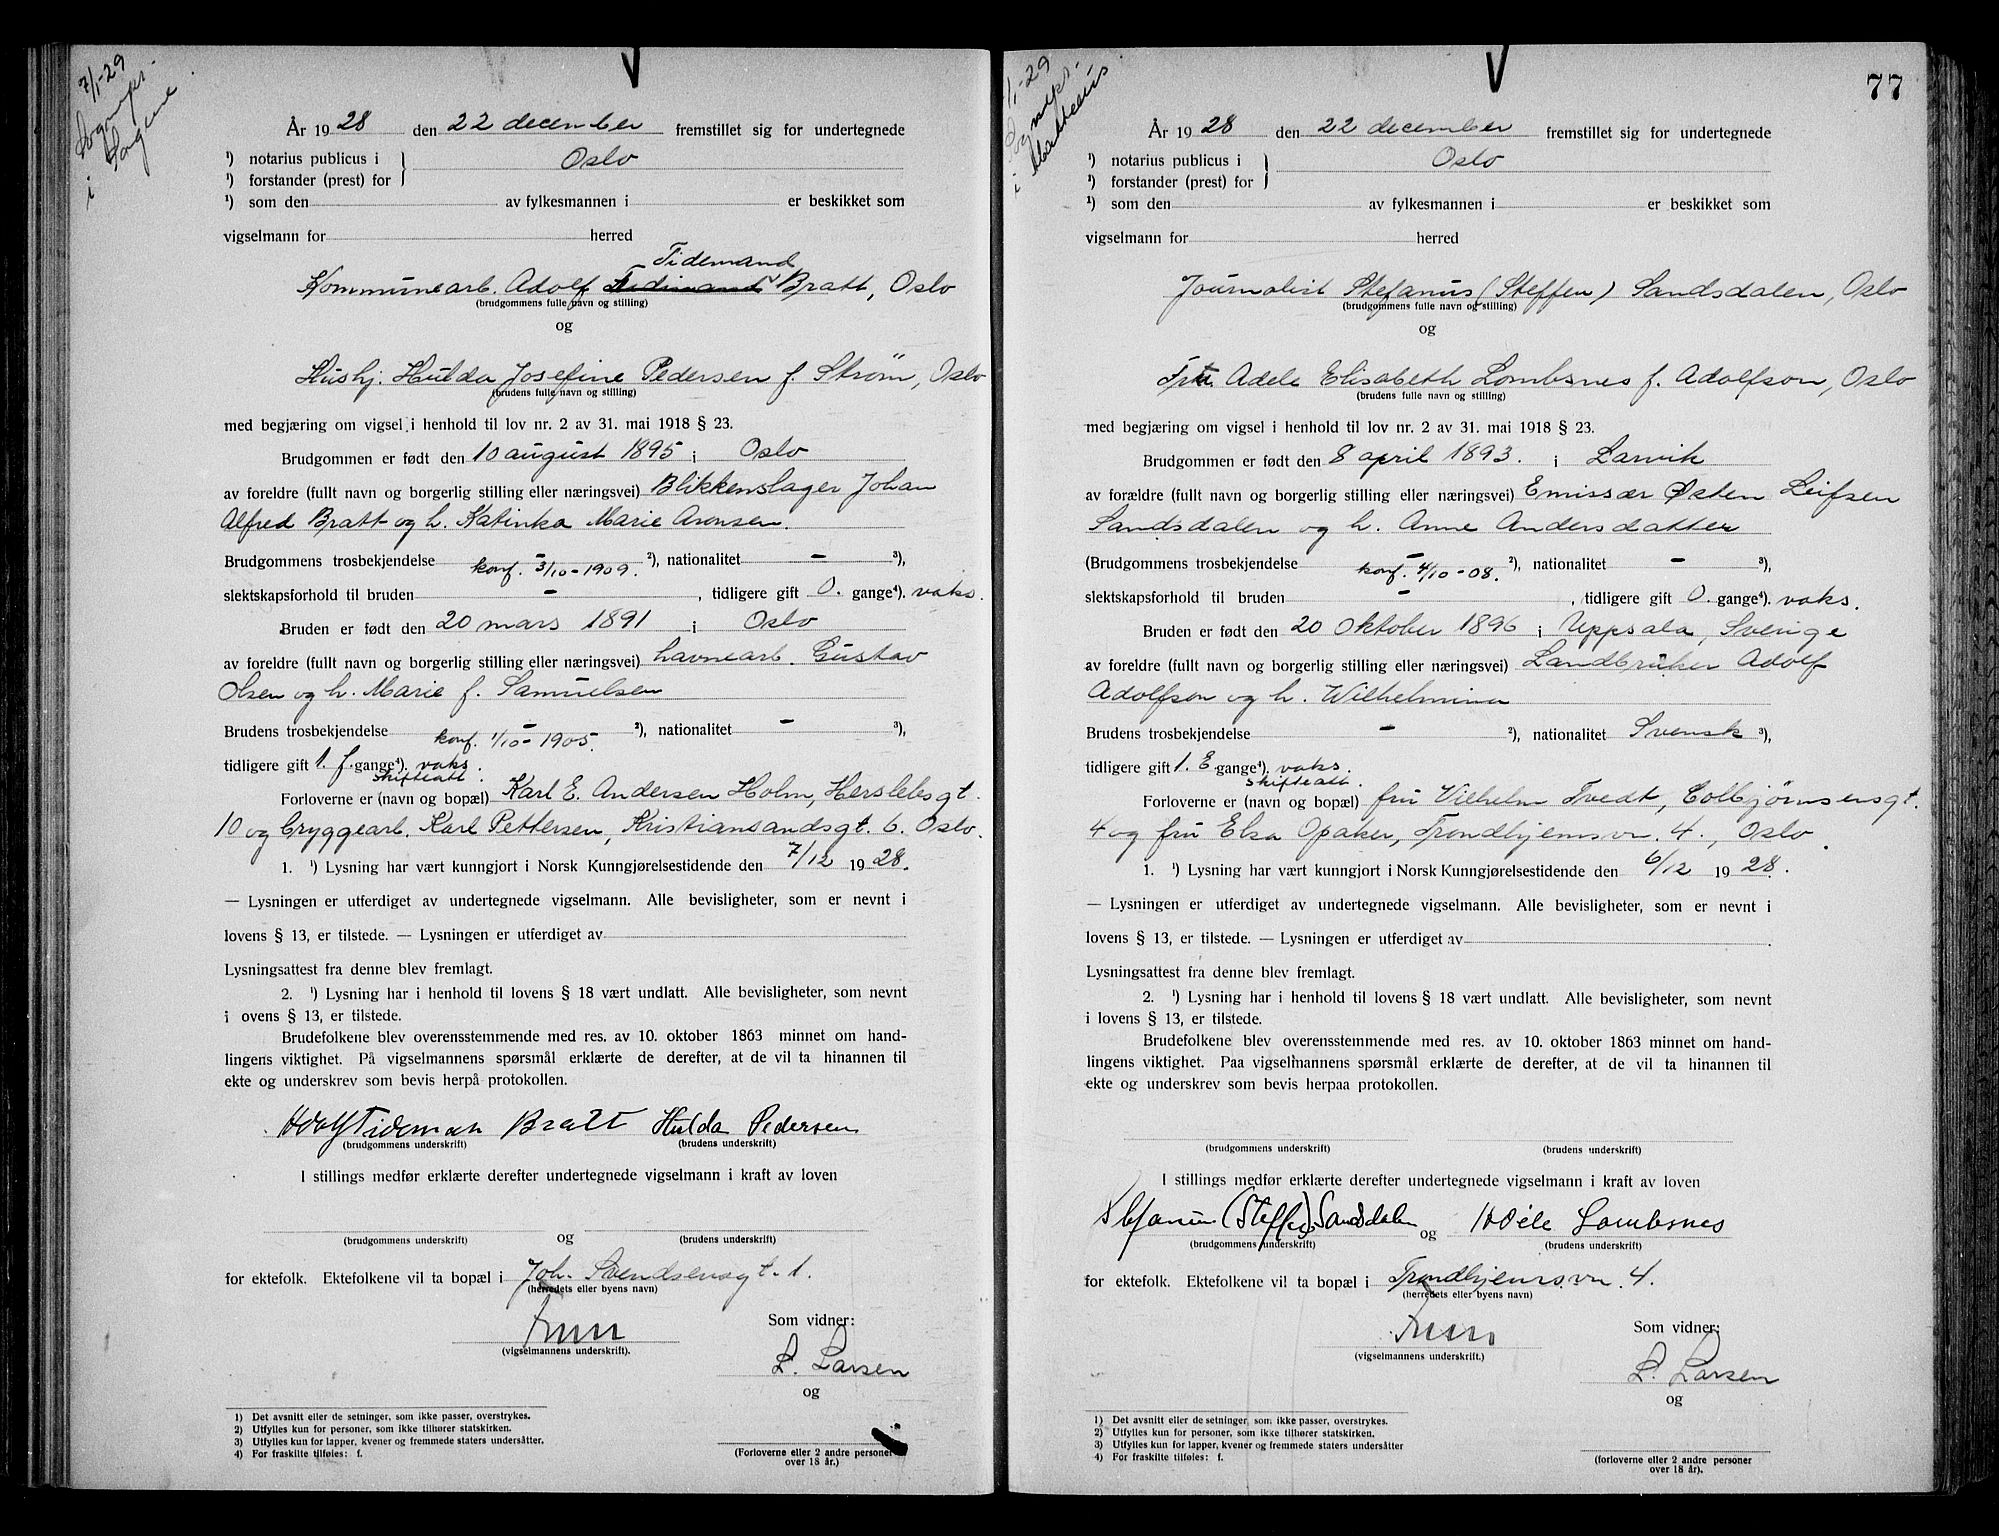 7/1-29
Sognepr.
i Sagene
År 1928 den 22 december fremstillet sig for undertegnede
¹) notarius publicus i } Oslo
¹) forstander (prest) for
¹) som den av fylkesmannen i er beskikket som
vigselmann for herred
Tidemand
Kommunearb. Adolf Fedinand Bratt, Oslo
(brudgommens fulle navn og stilling)
og
Hushj. Hulda Josefine Pedersen f. Strøm, Oslo
(brudens fulle navn og stilling)
med begjæring om vigsel i henhold til lov nr. 2 av 31. mai 1918 § 23.
Brudgommen er født den 10 august 1895 i Oslo
av foreldre (fullt navn og borgerlig stilling eller næringsvei) Blikkenslager Johan
Alfred Bratt og h. Katinka Marie Aronsen.
Brudgommens trosbekjendelse – ²), nationalitet – ³),
konf. 3/10-1909.
slektskapsforhold til bruden –, tidligere gift 0. gange⁴). vaks.
Bruden er født den 20 mars 1891 i Oslo
av foreldre (fullt navn og borgerlig stilling eller næringsvei) havnearb. Gustav
Olsen og h. Marie f. Samuelsen
Brudens trosbekjendelse – ²), nationalitet – ³),
konf. 1/10-1905.
tidligere gift 1. f. gange⁴). vaks.
skifteatt.
Forloverne er (navn og bopæl) Karl E. Andersen Holm, Herslebsgt.
10 og Bryggearb. Karl Pettersen, Kristiansandsgt. 6. Oslo.
1. ¹) Lysning har vært kunngjort i Norsk Kunngjørelsestidende den 7/12 1928.
— Lysningen er utferdiget av undertegnede vigselmann. Alle bevisligheter, som er nevnt i
lovens § 13, er tilstede. — Lysningen er utferdiget av
Lysningsattest fra denne blev fremlagt.
2. ¹) Lysning har i henhold til lovens § 18 vært undlatt. Alle bevisligheter, som nevnt
i ovens § 13, er tilstede.
Brudefolkene blev overensstemmende med res. av 10. oktober 1863 minnet om hand-
lingens viktighet. På vigselmannens spørsmål erklærte de derefter, at de vil ta hinannen til
ekte og underskrev som bevis herpå protokollen.
Adolf Tideman Bratt Hulda Pedersen
(brudgommens underskrift) (brudens underskrift)
I stillings medfør erklærte derefter undertegnede vigselmann i kraft av loven
og
(brudgommens underskrift) (brudens underskrift)
for ektefolk. Ektefolkene vil ta bopæl i Joh. Svendsensgt. 1.
(herredets eller byens navn)
Som vidner:
(vigselmannens underskrift).
L. Larsen
og
1) Det avsnitt eller de setninger, som ikke passer, overstrykes.
2) Utfylles kun for personer, som ikke tilhører statskirken.
3) Utfylles kun for lapper, kvener og fremmede staters undersåtter.
4) For fraskilte tilføies: f.
(Forloverne eller 2 andre personer
over 18 år.)
77
1/1-29
Sognepr.
i Markteus
År 1928 den 22 december fremstillet sig for undertegnede
¹) notarius publicus i } Oslo
¹) forstander (prest) for
¹) som den av fylkesmannen i er beskikket som
vigselmann for herred
Journalist Stefanus (Steffen) Sandsdalen, Oslo
(brudgommens fulle navn og stilling)
og
Fru Adele Elisabeth Lombsnes f. Adolfson, Oslo
(brudens fulle navn og stilling)
med begjæring om vigsel i henhold til lov nr. 2 av 31. mai 1918 § 23.
Brudgommen er født den 8 april 1893. i Larvik
av forældre (fullt navn og borgerlig stilling eller næringsvei) Emissær Østen Leifsen
Sandsdalen og h. Anne Andersdatter
(Brudgommens trosbekjendelse – ²), nationalitet – ³),
konf. 4/10-08.
slektskapsforhold til bruden –, tidligere gift 0. gange⁴). vaks.
Bruden er født den 20 oktober 1896 i Uppsala, Sverige
av foreldre (fullt navn og borgerlig stilling eller næringsvei) Landbruker Adolf
Adolfson og h. Wilhelmina
Brudens trosbekjendelse – ²), nationalitet Svensk ³),
tidligere gift 1. E gange⁴). vaks.
skifteatt.
Forloverne er (navn og bopæl) fru Vilhelm Tvedt, Colbjørnsensgt.
4 og fru Elsa Opaker, Trondhjemsvn. 4., Oslo.
1. ¹) Lysning har vært kunngjort i Norsk Kunngjørelsestidende den 6/12 1928.
— Lysningen er utferdiget av undertegnede vigselmann. Alle bevisligheter, som er nevnt i
lovens § 13, er tilstede. — Lysningen er utferdiget av
Lysningsattest fra denne blev fremlagt.
2. ¹) Lysning har i henhold til lovens § 18 vært undlatt. Alle bevisligheter, som nevnt
i lovens § 13, er tilstede.
Brudefolkene blev overensstemmende med res. av 10. oktober 1863 minnet om hand-
lingens viktighet. Paa vigselmannens spørsmål erklærte de derefter, at de vil ta hinannen til
ekte og underskrev som bevis herpaa protokollen.
(brudgommens underskrift) (brudens underskrift)
I stillings medfør erklærte derefter undertegnede vigselmann i kraft av loven
Stefanus (Steffen) Sandsdalen og Adéle Lombsnes
(brudgommens underskrift) (brudens underskrift)
for ektefolk. Ektefolkene vil ta bopæl i Trondhjemsvn. 4.
(herredets eller byens navn)
Som vidner:
(vigselmannens underskrift.)
L. Larsen
og
1) Det avsnitt eller de setninger, som ikke passer, overstrykes.
2) Utfylles kun for personer, som ikke tilhører statskirken.
3) Utfylles kun for lapper, kvener og fremmede staters undersåtter
4) For fraskilte tilføies: f.
(forloverne eller 2 andre personer
over 18 år).